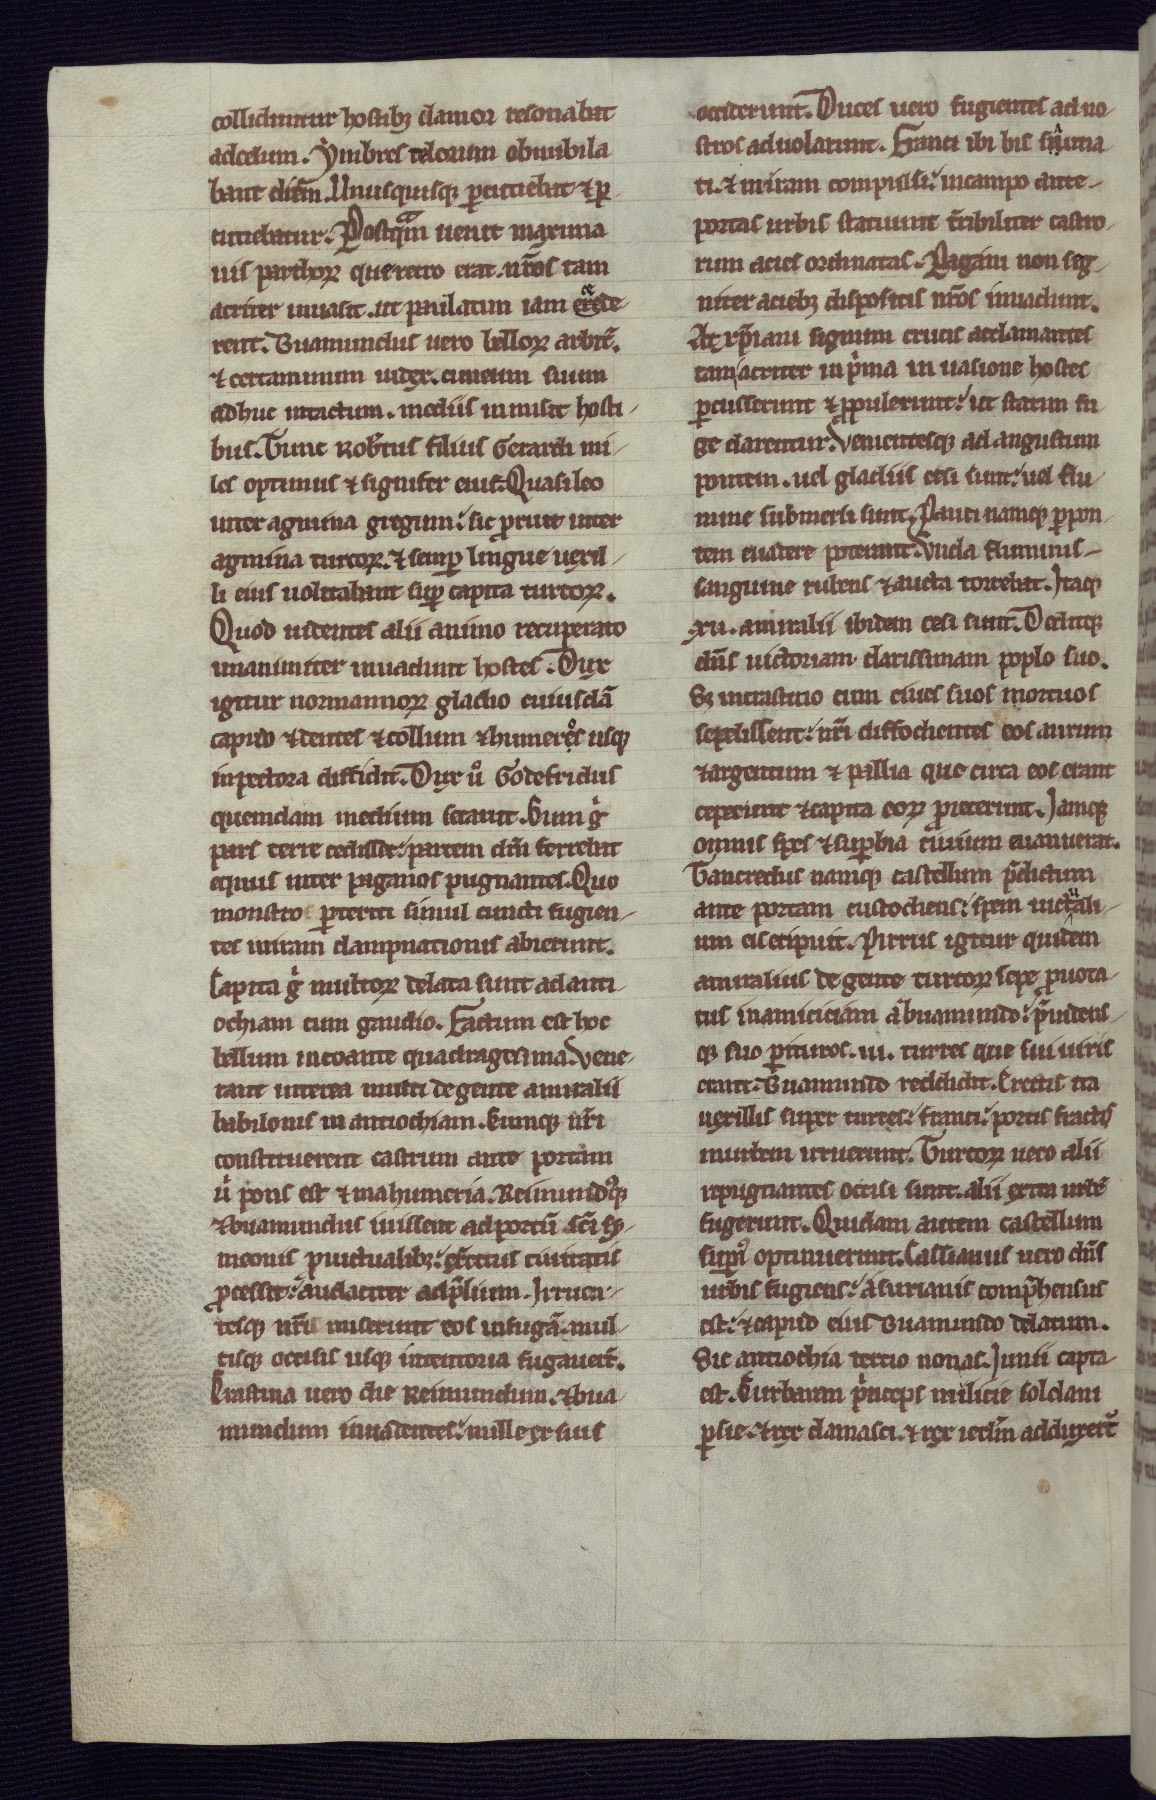 colliduntur hostibꝫ clamor resonabat
ad celum. Ymbres telorum obnubila
bant diē. Unusquisqꝫ ꝑcutiebat ⁊ ꝑ
cutiebatur. Postqᵃm uenit maxima
uis parthoꝝ que retro erat. nr̄os tam
acriter inuasit. ut paulatim iam cede
rent. Buamundus uero belloꝝ arbit̄.
⁊ certaminum iudex. cuneum suum
adhuc intactum. mediis inmisit hosti-
bus. Tunc Rob̄tus filius Gerardi mi-
les optimus ⁊ signifer eius. Quasi leo
inter agmina gregum. sic ꝓruit inter
agmina turcoꝝ. ⁊ semꝑ lingue uexil-
li eius uolitabant suꝑ capita turcoꝝ.
Quod uidentes alii animo recuperato
unanimiter inuadunt hostes. Dux
igitur normannoꝝ gladio cuiusdā
capud ⁊ dentes ⁊ collum ⁊ humeros usqꝫ
in pectora diffidit. Dux uº Godefridus
quemdam medium secauit. Cum gͥ
pars terre cecidisset. partem dim̄ ferebat
equus inter paganos pugnantes. Quo
monstro ꝑterriti simul cuncti fugien-
tes uiam dampnationis abierunt.
Capita gͥ multoꝝ delata sunt ad anti-
ochiam cum gaudio. Factum est hoc
bellum incoante quadragesima. Vene-
rant interea nuntii de gente amiralii
babilonis in antiochiam. Cumqꝫ nr̄i
constituerent castrum ante portam
uͥ pons est ⁊ mahumeria. Reimundꝰqꝫ
⁊ buamundus iuissent ad portū sc̄i sy-
meonis ꝓ uictualibꝫ. exc̄itus ciuitatis
ꝓcessit. audaciter ad p̄lium. Irruen-
tesqꝫ nr̄i miserunt eos in fugā. mul-
tisqꝫ occisis usqꝫ in tentoria fugauer̄t.
Crastina uero die Reimundum. ⁊ bua-
mundum inuadentes. mille ex suis
occiderunt. Duces uero fugientes ad no-
stros aduolarunt. Franci ibi bis
ti. ⁊ in iram compulsi. in campo ante-
portas urbis statuunt t̄ribiliter castro-
rum acies ordinatas. Pagani non seg-
niter aciebꝫ dispositis nr̄os inuadunt.
At xp̄iani signum crucis acclamantes
tam acriter in pͥma inuasione hostes
ꝑcusserunt ⁊ ꝓpulerunt. ut statim fu
ge darentur. Venientesqꝫ ad angustum
pontem. uel gladiis cesi sunt. uel flu-
mine submersi sunt. Pauci namqꝫ ꝑ pon-
tem euadere potuerunt. Unda fluminis-
sanguine rubens ⁊ aucta torrebat. Itaqꝫ
xii. amiralii ibidem cesi sunt. Deditqꝫ
dn̄s uictoriam clarissimam poplo suo.
Sꝫ in crastino cum ciues suos mortuos
sepelissent. nr̄i diffodientes eos aurum
⁊ argentum ⁊ pallia que circa eos erant
ceperunt ⁊ capita eoꝝ ꝓiecerunt. Iamqꝫ
omnis spes ⁊ suꝑbia ciuium euanuerat.
Tancredus namqꝫ castellum p̄dictum
ante portam custodiens. spem uictuali-
um eis eripuit. Pirrus igitur quidem
amiralius de gente turcoꝝ sepe ꝓuoca-
tus in amiciciam a buamundo. p̄uidens-
qꝫ suo ꝑituros. iii. turres que sui iuris
erant. Buamundo reddidit. Erectis ita
uexillis super turres. franci. portis fractis
in urbem irruerunt. Turcoꝝ uero alii
repugnantes occisi sunt. alii extra urbē
fugerunt. Quidam autem castellum
supͥꝰ optinuerunt. Cassianus uero dn̄s
urbis fugiens. a surianis comp̄hensus
est. ⁊ capud eius Buamundo delatum.
Sic antiochia tercio nonas. Junii capta
est. Curbaran pͥnceps milicie soldani
ꝑsie. ⁊ rex damasci. ⁊ rex ierlm̄ adduxer̄t